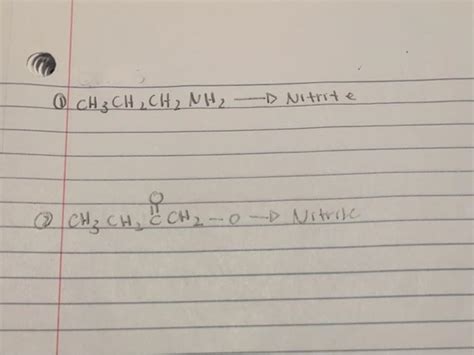 ① CH₃CH₂CH₂NH₂ → Nitrite
O
② CH₃CH₂CCH₂-O → Nitrite